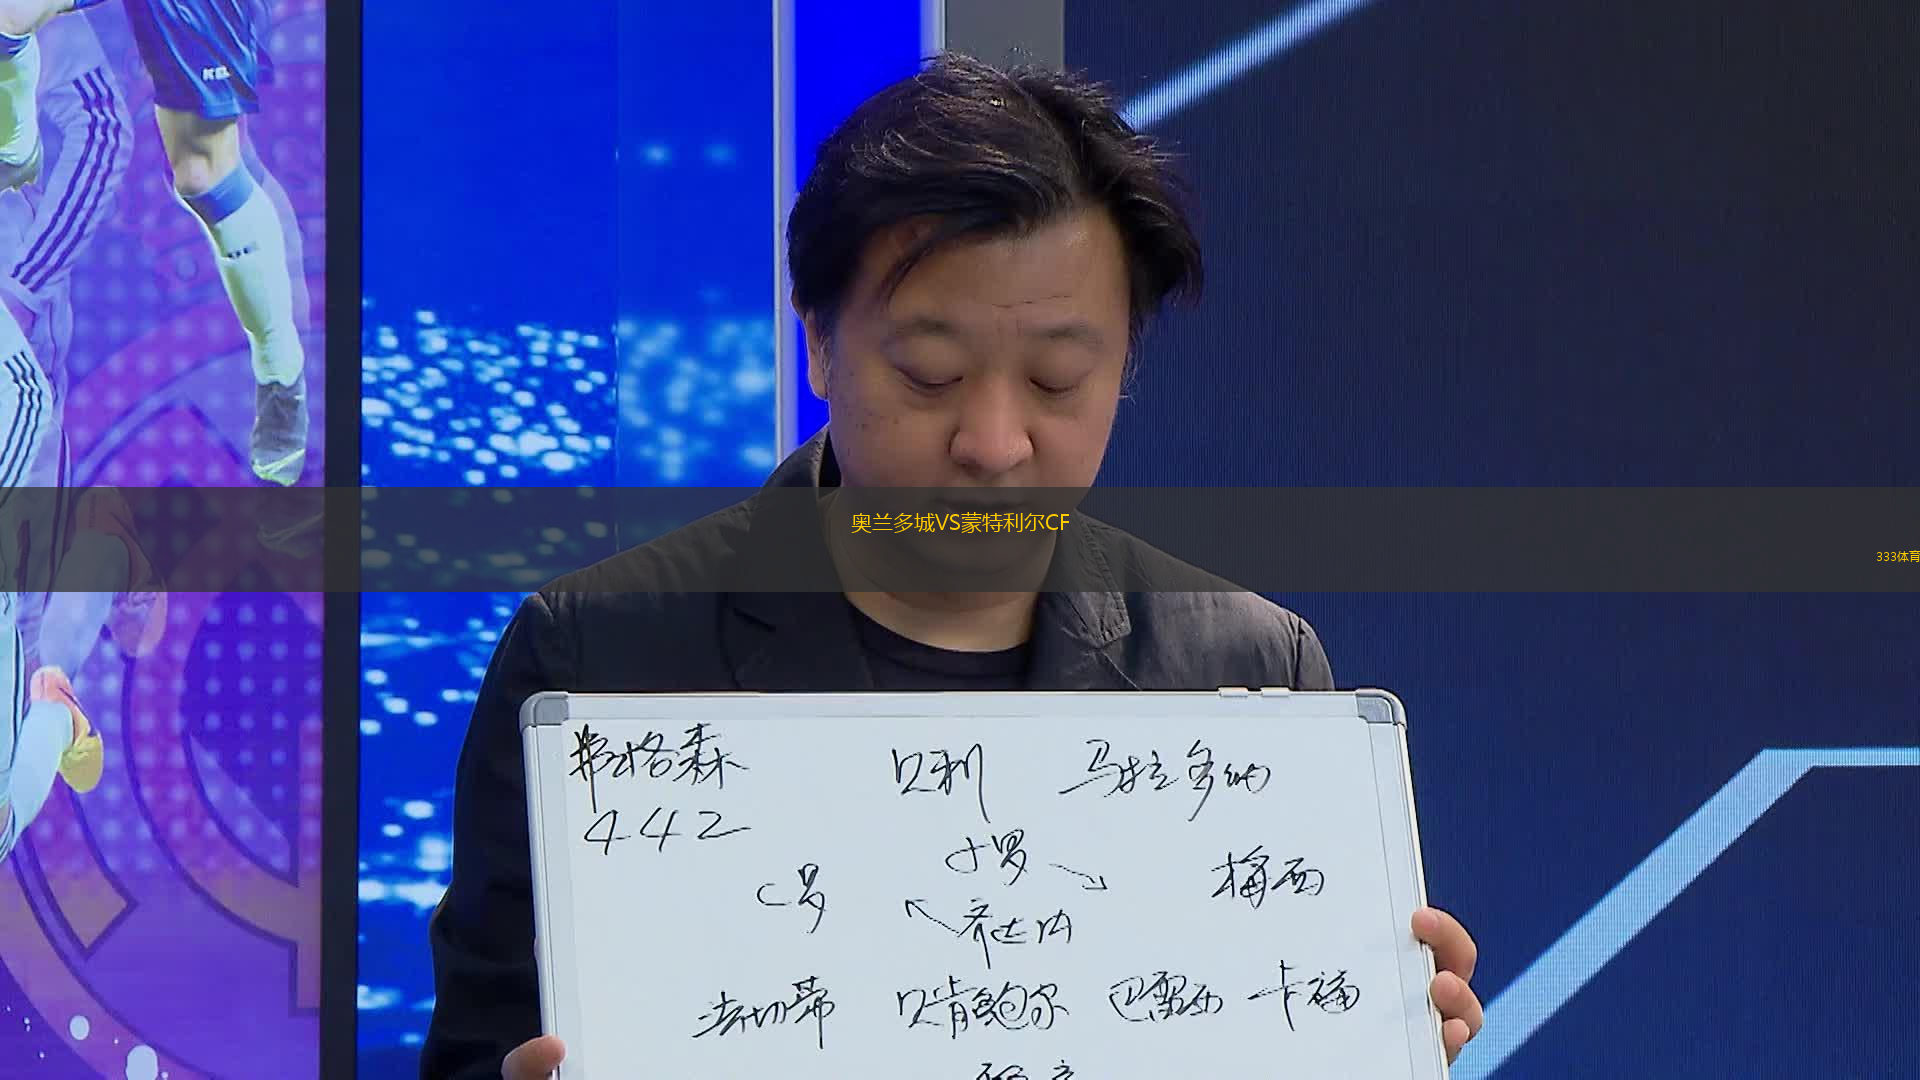 奥兰多城VS蒙特利尔CF
333体育
弗格森 贝利 马拉多纳
442
小罗
C罗 梅西
齐达内
法切蒂 贝肯鲍尔 巴雷西 卡福